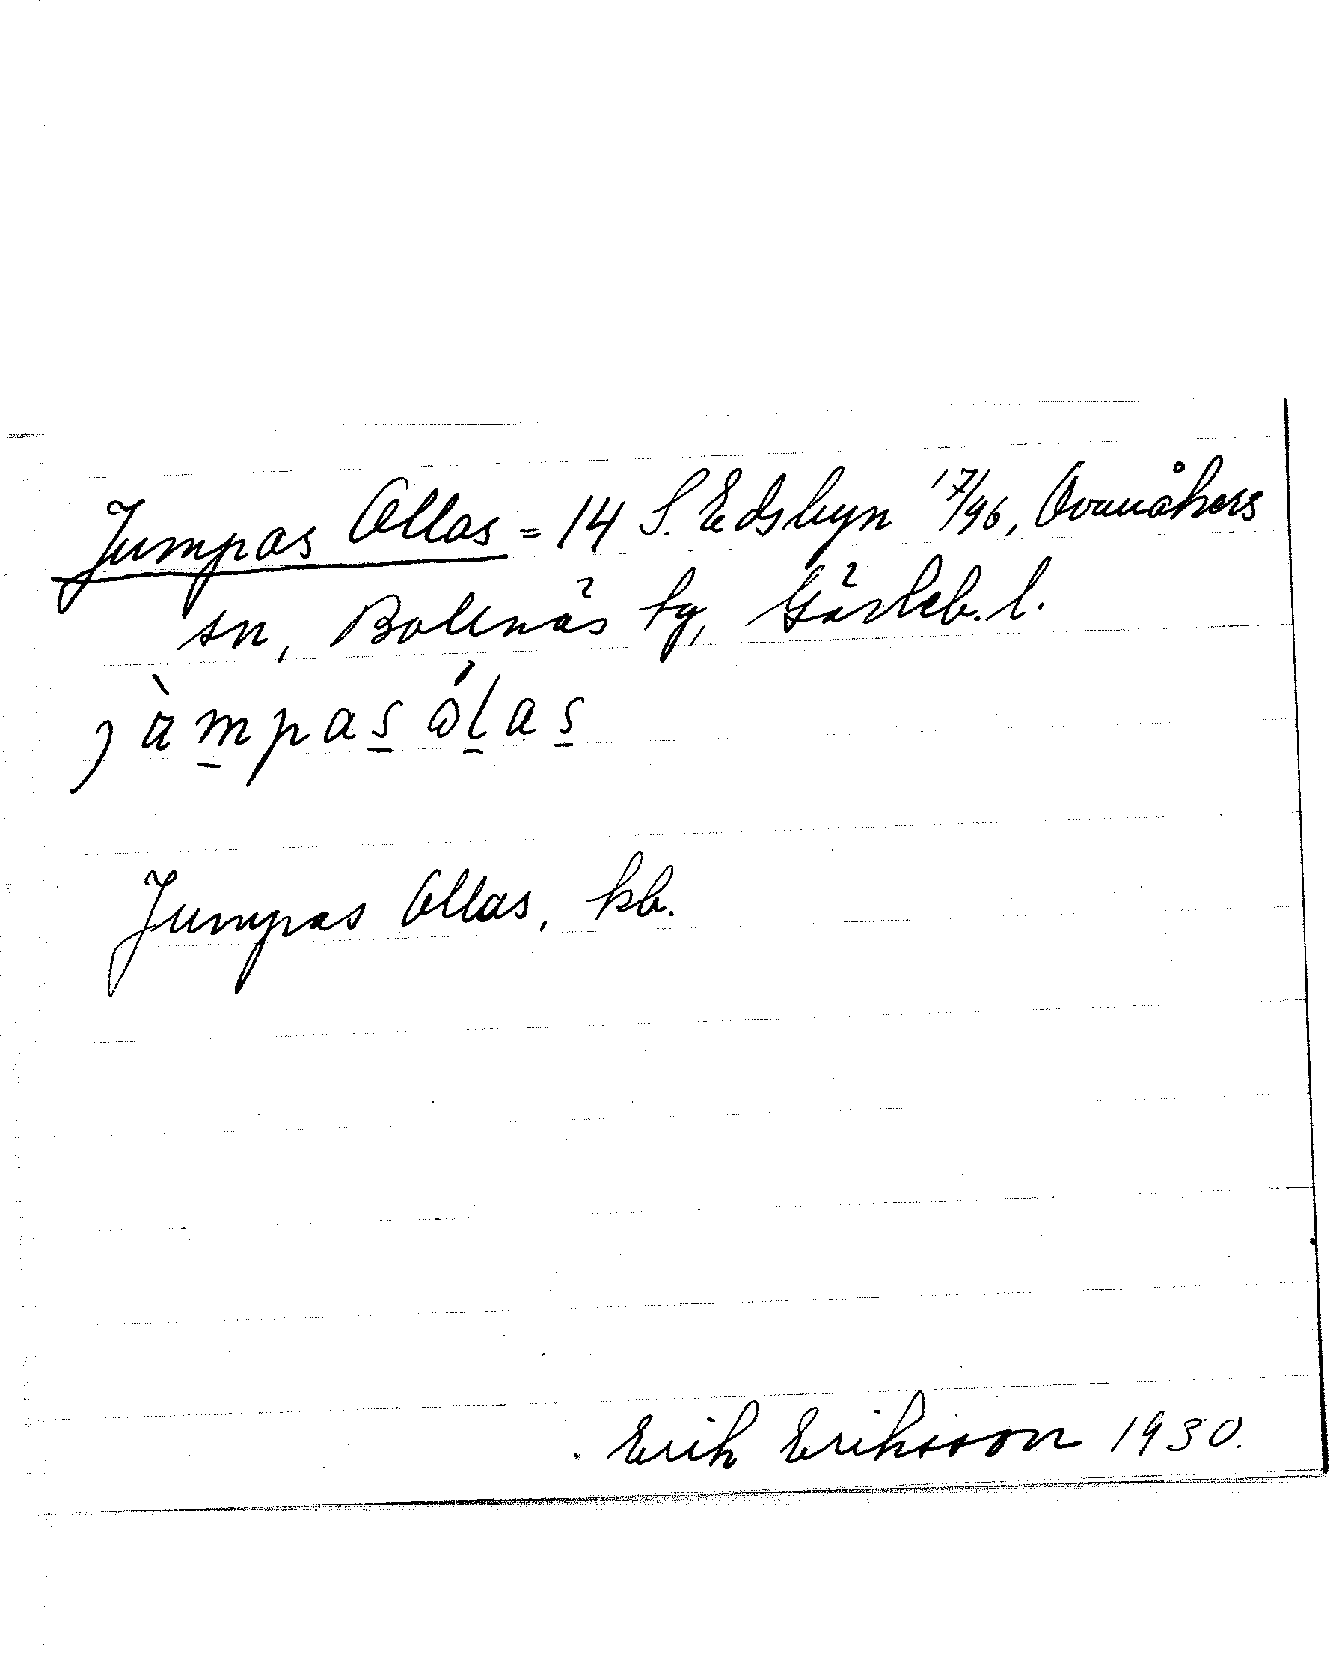 Jumpas Ollas = 14 S. Edsbyn 17/96, Ovanåkers
sn, Bollnäs tg, Gävleb. l.
jàmpas ólas
Jumpas Ollas, kb.
Erik Eriksson 1930.